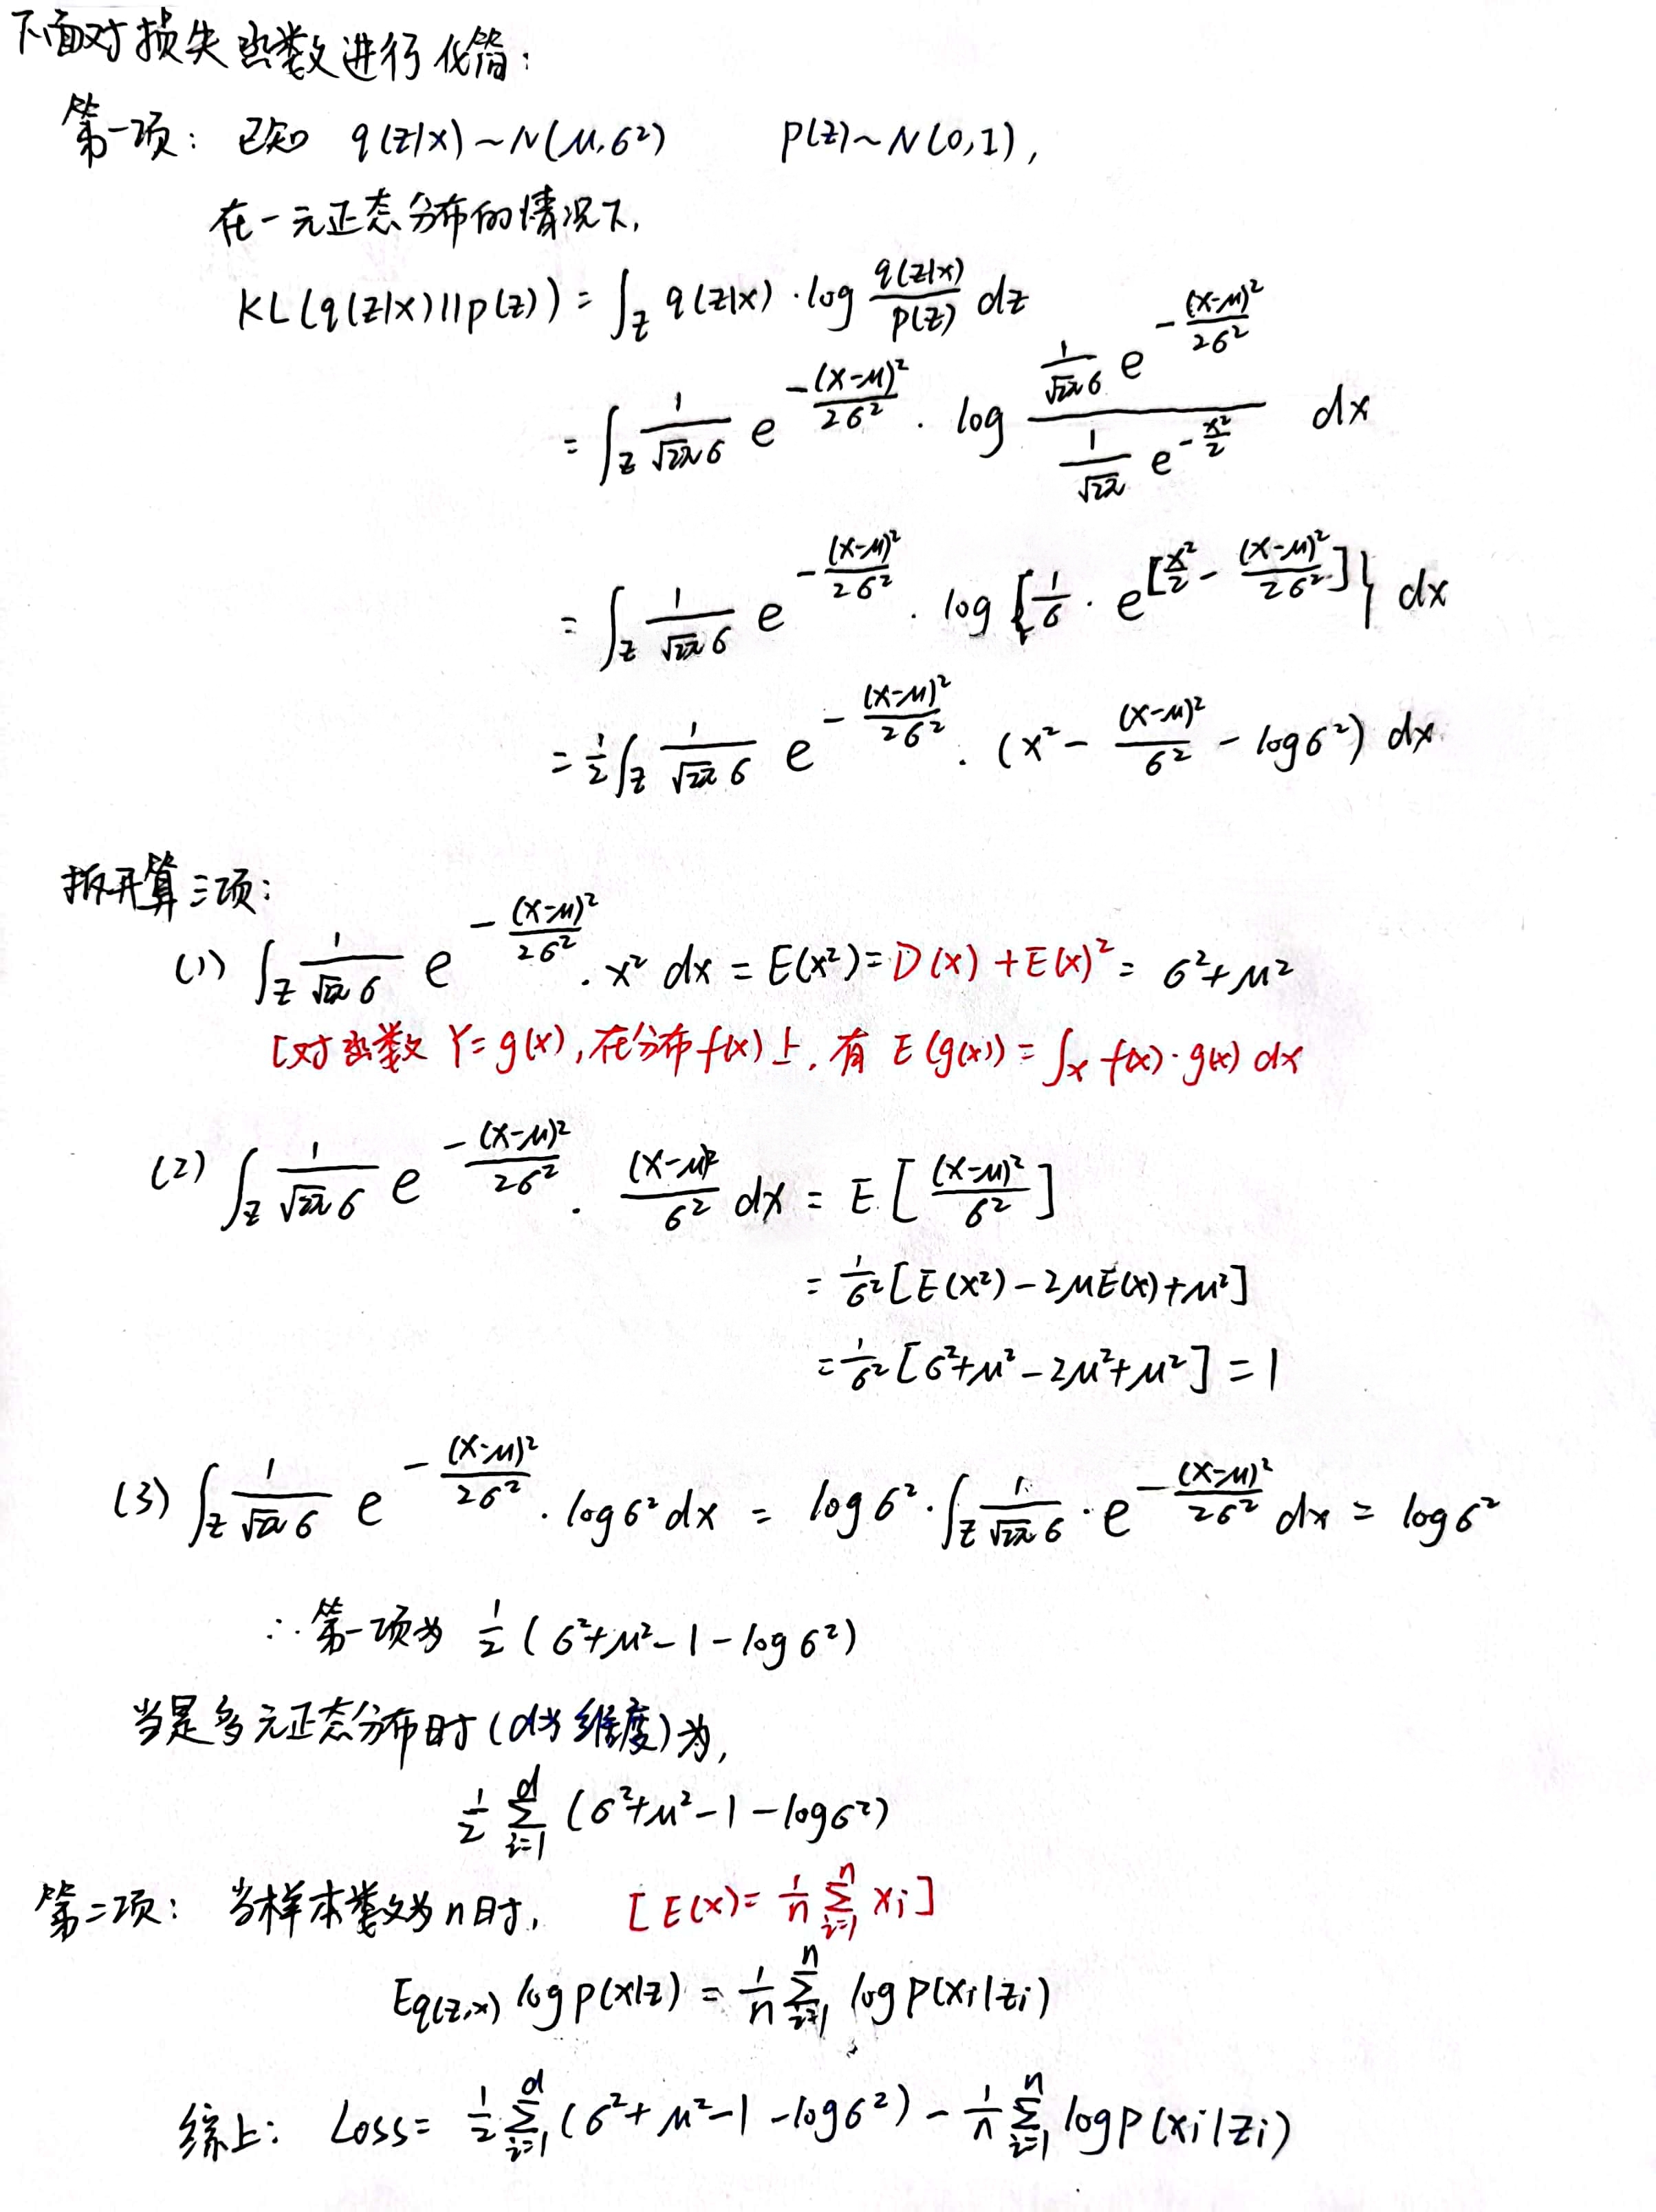 下面对损失函数进行化简：
第一项：已知 q(z|x)~N(μ,σ²) p(z)~N(0,1),
在一元正态分布的情况下,
KL(q(z|x)||p(z)) = ∫_z q(z|x)·log \frac{q(z|x)}{p(z)} dz
= ∫_z \frac{1}{\sqrt{2π}σ} e^{-\frac{(x-μ)²}{2σ²}} · log \frac{\frac{1}{\sqrt{2π}σ} e^{-\frac{(x-μ)²}{2σ²}}}{\frac{1}{\sqrt{2π}} e^{-\frac{x²}{2}}} dx
= ∫_z \frac{1}{\sqrt{2π}σ} e^{-\frac{(x-μ)²}{2σ²}} · log {\frac{1}{σ} · e^{[\frac{x²}{2} - \frac{(x-μ)²}{2σ²}]}} dx
= \frac{1}{2}∫_z \frac{1}{\sqrt{2π}σ} e^{-\frac{(x-μ)²}{2σ²}} · (x² - \frac{(x-μ)²}{σ²} - logσ²) dx
拆开算三项：
(1) ∫_z \frac{1}{\sqrt{2π}σ} e^{-\frac{(x-μ)²}{2σ²}} · x² dx = E(x²) = D(x) + E(x)² = σ²+μ²
[对函数 Y=g(x), 在分布f(x)上, 有 E(g(x)) = ∫_x f(x)·g(x) dx
(2) ∫_z \frac{1}{\sqrt{2π}σ} e^{-\frac{(x-μ)²}{2σ²}} · \frac{(x-μ)²}{σ²} dx = E[\frac{(x-μ)²}{σ²}]
= \frac{1}{σ²}[E(x²) - 2μE(x) + μ²]
= \frac{1}{σ²}[σ²+μ²-2μ²+μ²] = 1
(3) ∫_z \frac{1}{\sqrt{2π}σ} e^{-\frac{(x-μ)²}{2σ²}} · logσ² dx = logσ² · ∫_z \frac{1}{\sqrt{2π}σ} · e^{-\frac{(x-μ)²}{2σ²}} dx = logσ²
∴第一项为 \frac{1}{2}(σ²+μ²-1-logσ²)
当是多元正态分布时(d为维度)为,
\frac{1}{2} \sum_{i=1}^{d} (σ²+μ²-1-logσ²)
第二项：当样本数为n时, [E(x) = \frac{1}{n} \sum_{i=1}^{n} x_i]
E_{q(z,x)} log p(x|z) = \frac{1}{n} \sum_{i=1}^{n} log p(x_i|z_i)
综上: Loss = \frac{1}{2} \sum_{i=1}^{d} (σ²+μ²-1-logσ²) - \frac{1}{n} \sum_{i=1}^{n} log p(x_i|z_i)